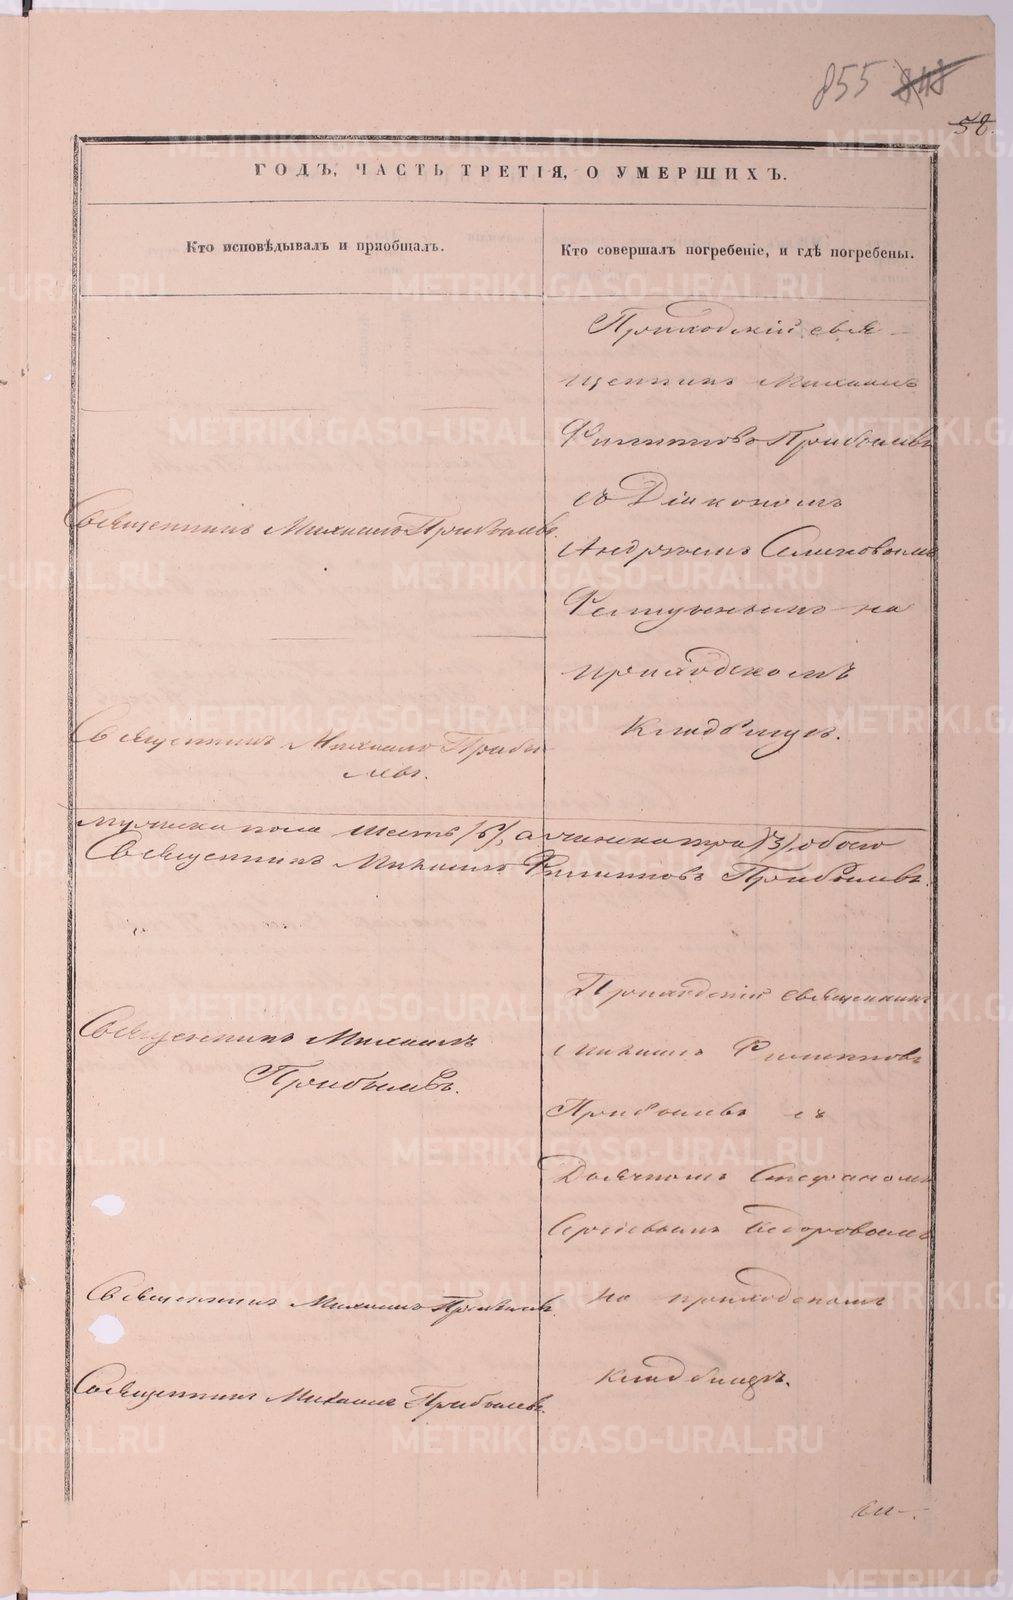 855 848
58.
ГОДЪ, ЧАСТЬ ТРЕТІЯ, О УМЕРШИХЪ.
Кто исповѣдывалъ и пріобщалъ.
Кто совершалъ погребеніе, и гдѣ погребены.
Священникъ Михаилъ Прибылевъ.
Священникъ Михаилъ Прибы
левъ.
Приходскій свя-
щенникъ Михаилъ
Филипповъ Прибылевъ
съ Діакономъ
Андреемъ
на
приходскомъ
кладбищѣ.
мужска пола шесть /6/, а женска три /3/, обоего
Священникъ Михаилъ Филипповъ Прибылевъ.
Священникъ Михаилъ
Прибылевъ.
Священникъ Михаилъ Прибылевъ.
Священникъ Михаилъ Прибылевъ.
Приходскій священникъ
Михаилъ Филипповъ
Прибылевъ съ
Дьячкомъ Стефаномъ
Сергіевымъ Пегоровымъ
на приходскомъ
кладбищѣ.
METRIKI.GASO-URAL.RU